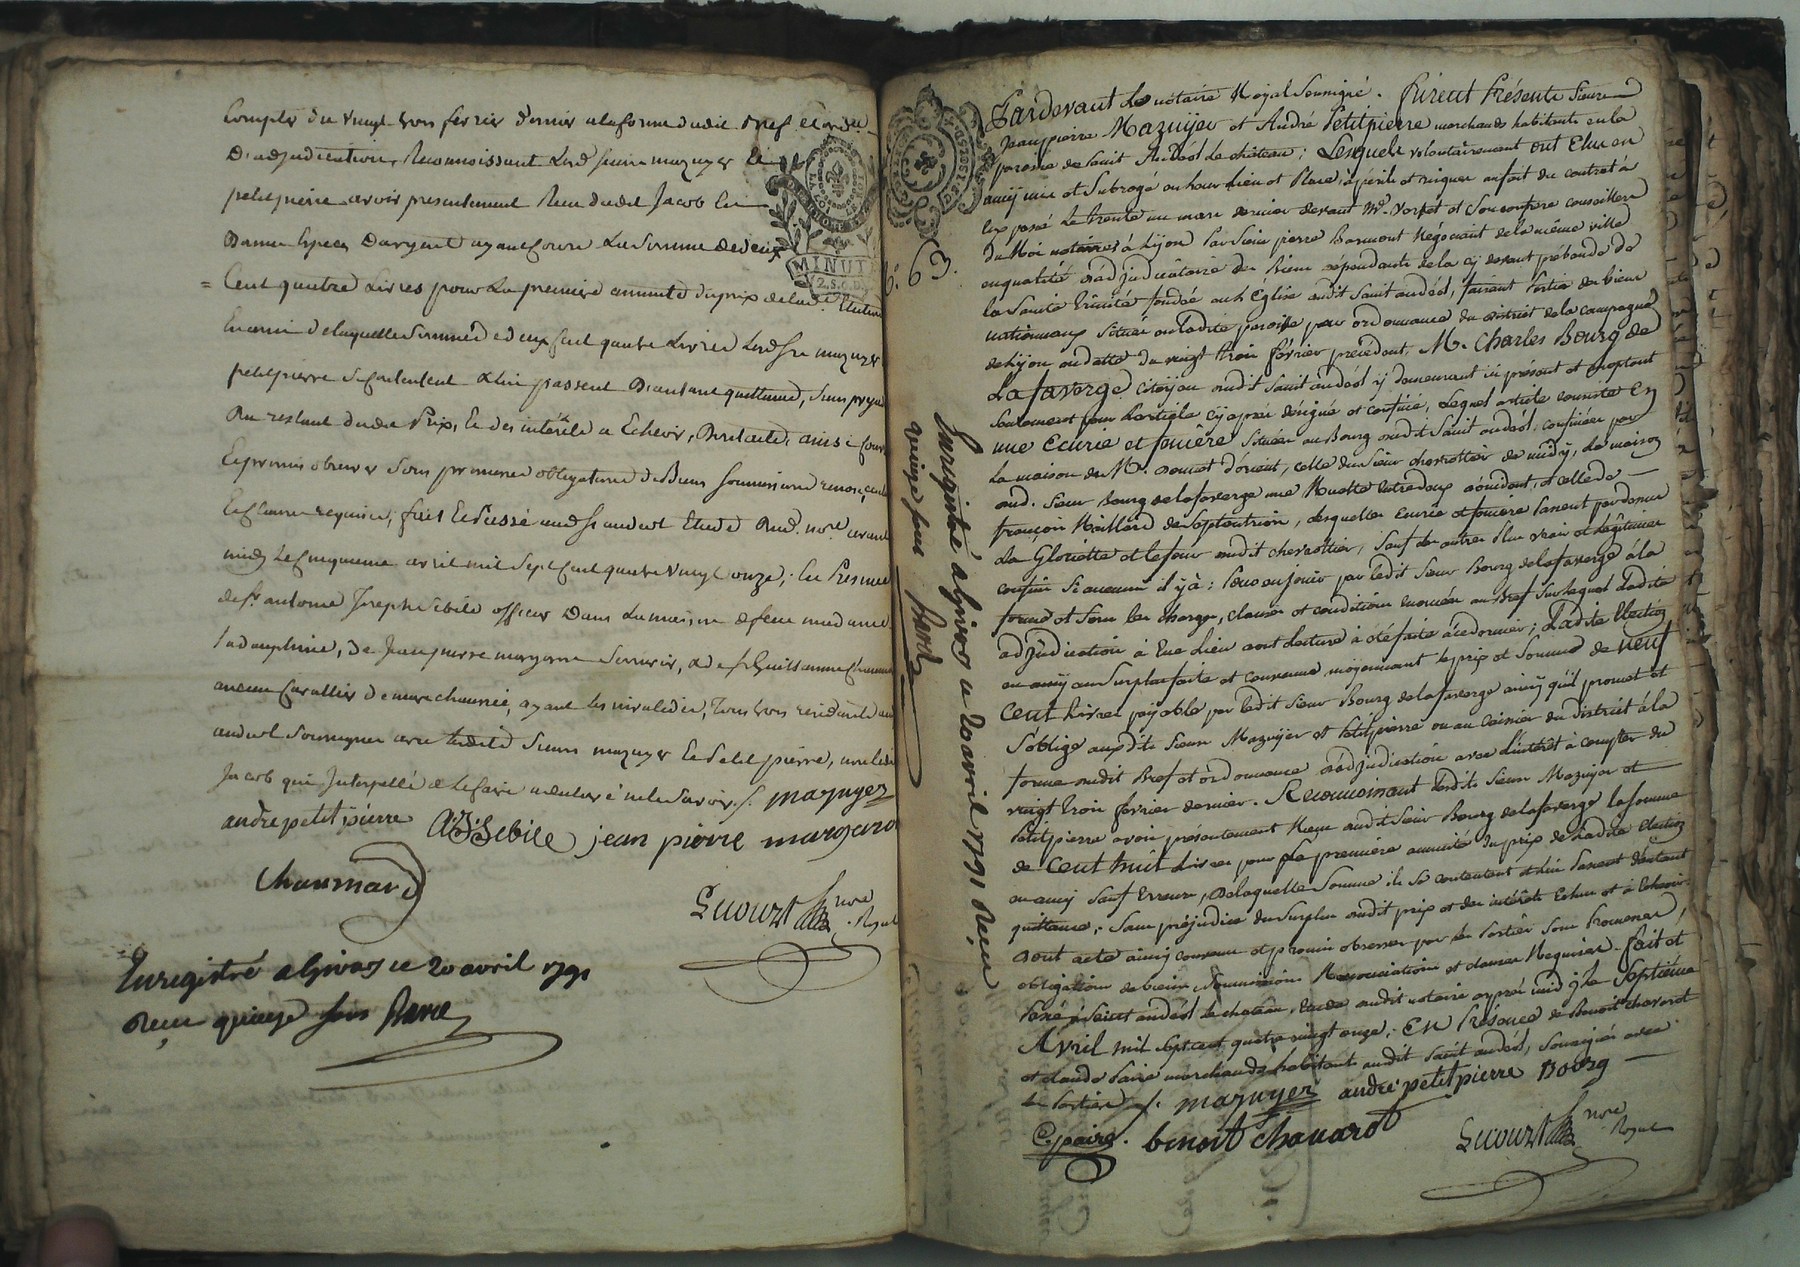 Compter du vingt trois fevrier dernier a la forme dudit Bref et ordce
D'adjudication, Reconnoissant Lesd. sieurs mazuyer et
petitpierre avoir presentement Recu dudit Jacob en
Bonnes Especes D'argent ayant Cours La Somme de deux
Cent quatre Livres pour La premiere annuité du prix de lad. Election
En amie de laquelle Somme de deux Cent quatre Livres Lesd. srs mazuyer
petitpierre se Contentent & lui passent D'autant quittance, sans prejud
Du restant dudit Prix, et des interêts a Echeoir, Dont acte, ainsi Conv
Et promis observer sous promesses obligations de Biens soumissions renonc
Et Clauses requises, fait Et Passé aud. st andeol Etude Dud. nore. avant
midy Le Cinquieme avril mil Sept Cent quatre vingt onze; En Presence
de sr. antoine Joseph Sibile officier Dans La maison de feue madame
La dauphine, de Jean pierre margaron & de sr. Guillaume Chaumard
ancien Cavallier de marechaussée, ayant les invalides, Tous trois residants aud
andeol Soussignes avec Lesdits Sieurs mazuyer Et Petitpierre, non ledit
Jacob qui Interpellé de Le faire a declaré ne le Savoir. mazuyer
andre petit pierre AJSibile jean pierre margaron
Chaumard
Lucourt nore. Royal
Enregistré a Givors ce 20 avril 1791
Recu quinze sous
MINUTE
2.S.6.D.
63.
Enregistré a Givors ce 20 avril 1791 Recu
quinze sous
Pardevant Le notaire Royal Soussigné. furent Présents Sieurs
Jean pierre Mazuyer et André Petitpierre marchands habitants en la
paroisse de Saint Andéol Le château; Lesquels volontairement ont Elu en
amy mis et Subrogé en leur Lieu et Place, a périls et risques au fait du contrat à
eux passé Le trente un mars dernier devant Me. et Son confrere conseillers
du Roi notaires à Lyon Par Sieur pierre Négociant de la même ville
en qualité d'adjudicataire des Biens dépendants de la cy devant prébende de
la Sainte Trinité fondée en L'Église dudit Saint andéol, faisant Partie des biens
nationnaux Situés en Ladite paroisse par ordonnance du district de la Campagne
de Lyon en datte du vingt trois février précédent. Mr. Charles Bourg de
Lafaverge, Citoyen dudit Saint andéol y demeurant ici présent et acceptant
Seulement pour L'article cy après désigné et confiné, Lequel article consiste En
une Ecurie et feniére Situées au Bourg dudit Saint andéol, confinées par
La maison de Mr. d'orient, celle du Sieur chevrottier de midy, La maison
dud. Sieur Bourg de lafaverge une Ruette Entredeux d'occident, et celle de
françois Maillard de Septentrion, desquelles Ecurie et feniére
La Gloriette et le four dudit chevrottier, Sauf de autres Plus vrais et légitimes
confins Si aucuns il y à; Pour en jouir par Ledit Sieur Bourg de lafaverge à la
forme et Sous les charges, clauses et conditions énoncées au Bref Sur lequel Ladite
adjudication à Eue Lieu dont Lecture à été faite à ce dernier; Ladite Election
en amy au Surplus faite et convenue moyennant le prix et Somme de neuf
cent Livres payable par Ledit Sieur Bourg de lafaverge ainsy qu'il promet et
S'oblige auxdits Sieurs Mazuyer et Petitpierre ou au caissier du district à la
forme dudit Bref et ordonnance d'adjudication avec L'intérêt à compter du
vingt trois février dernier. Reconnoissant Lesdits Sieurs Mazuyer et
Petitpierre avoir présentement Recu dudit Sieur Bourg de lafaverge la Somme
de Cent huit Livres pour La premiere annuité du prix de Ladite Election
en amy Sauf Erreur, de laquelle Somme ils Se contentent et lui Passent d'autant
quittance; Sans préjudice du Surplus dudit prix et des intérêts Echus et à Echeoir
Dont acte ainsy convenu et promis observer par les Parties Sous Promesses,
obligations de biens Soumissions Renonciations et clauses Requises. fait et
Passé à Saint andéol le château, Etude dudit notaire après midy le Septiéme
Avril mil Sept cent quatre vingt onze; En Présence de Benoit chavarot
et claude Paire marchands habitants audit Saint andéol, Soussignés avec
les Parties. mazuyer andré petitpierre Bourg
Cpaire. benoit Chavarot
Lucourt nore. Royal